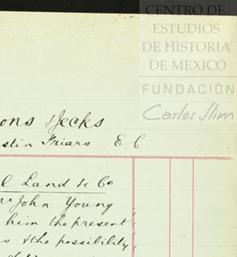 CENTRO DE
ESTUDIOS
DE HISTORIA
DE MEXICO
FUNDACIÓN
Carlos Slim
ons Jecks
stin Friars E C
Land & Co
John Young
him the present
s & the possibility